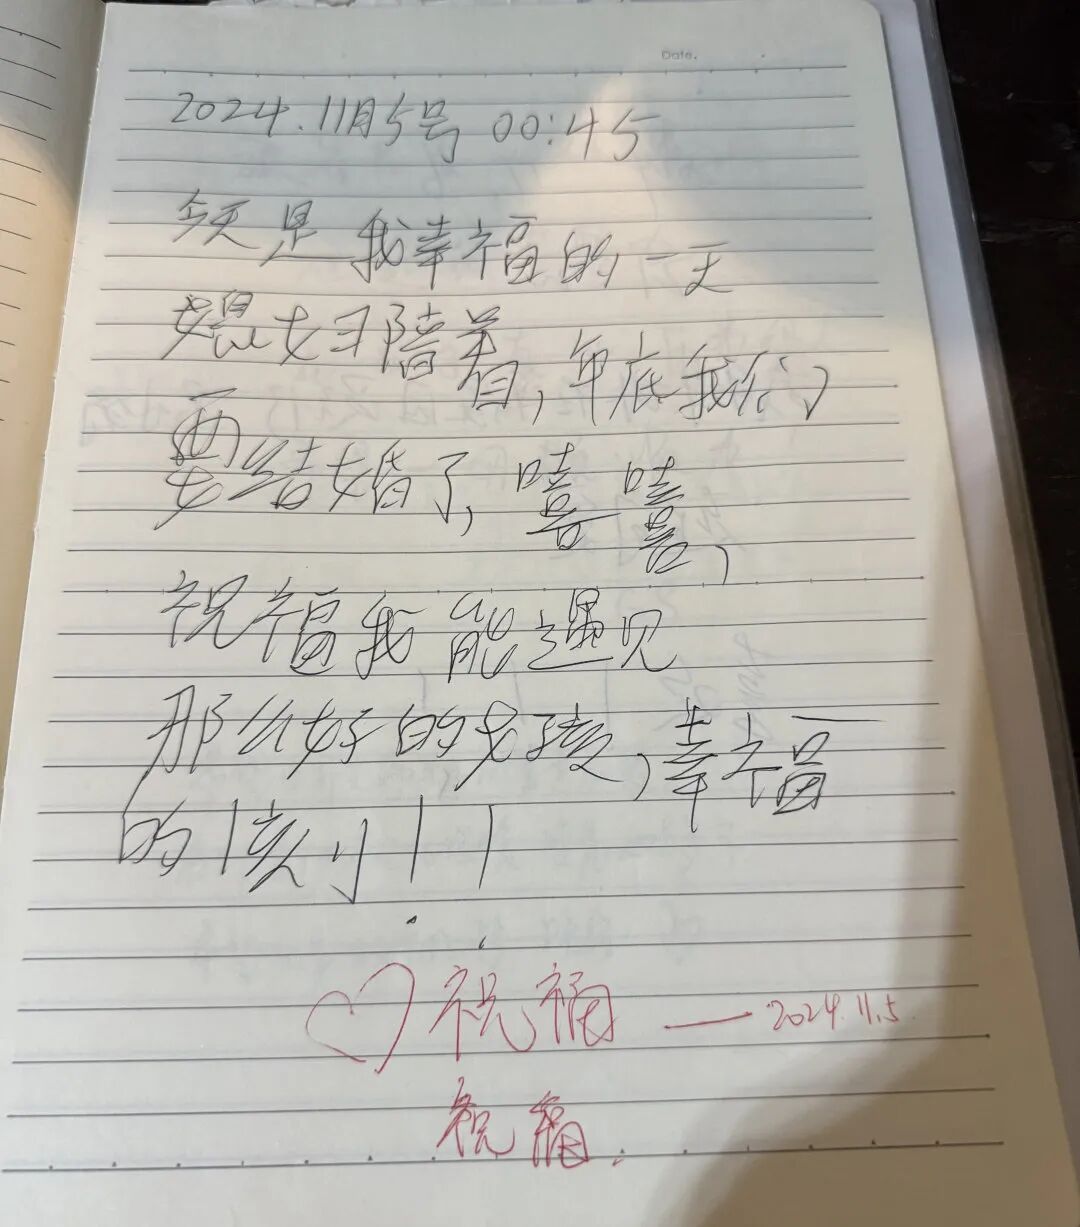 Date.
2024.11月5号 00:45
今天是我幸福的一天
媳女习陪着,年底我们
要结婚了,嘻嘻,
祝福我能遇见
那么好的女孩,幸福
的
♡祝福——2024.11.5.
祝福.